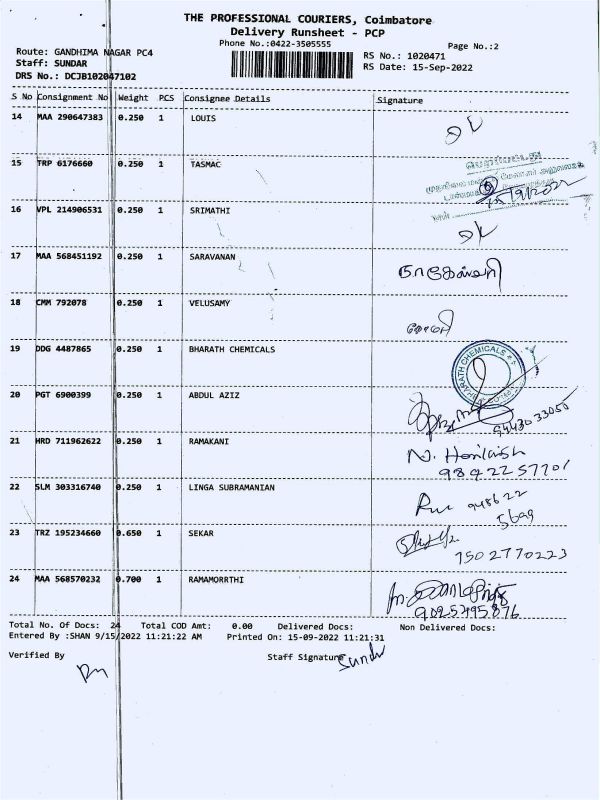 THE PROFESSIONAL COURIERS, Coimbatore
Delivery Runsheet - PCP
Phone No.:0422-3505555
Page No.:2
Route: GANDHIMA NAGAR PC4
RS No.: 1020471
Staff: SUNDAR
RS Date: 15-Sep-2022
DRS No.: DCJB102047102
S No Consignment No Weight PCS Consignee Details Signature
14 MAA 290647383 0.250 1 LOUIS
15 TRP 6176660 0.250 1 TASMAC
16 VPL 214906531 0.250 1 SRIMATHI
17 MAA 568451192 0.250 1 SARAVANAN நாகேஸ்வரி
18 CMM 792078 0.250 1 VELUSAMY கோமதி
19 DDG 4487865 0.250 1 BHARATH CHEMICALS
BHARATH CHEMICALS
20 PGT 6900399 0.250 1 ABDUL AZIZ
9443033050
21 HRD 711962622 0.250 1 RAMAKANI N. Harikrish
9842257701
22 SLM 303316740 0.250 1 LINGA SUBRAMANIAN 948622
5699
23 TRZ 195234660 0.650 1 SEKAR
7502770223
24 MAA 568570232 0.700 1 RAMAMORRTHI
9025495876
Total No. Of Docs: 24 Total COD Amt: 0.00 Delivered Docs: Non Delivered Docs:
Entered By :SHAN 9/15/2022 11:21:22 AM Printed On: 15-09-2022 11:21:31
Verified By Staff Signature Sundar